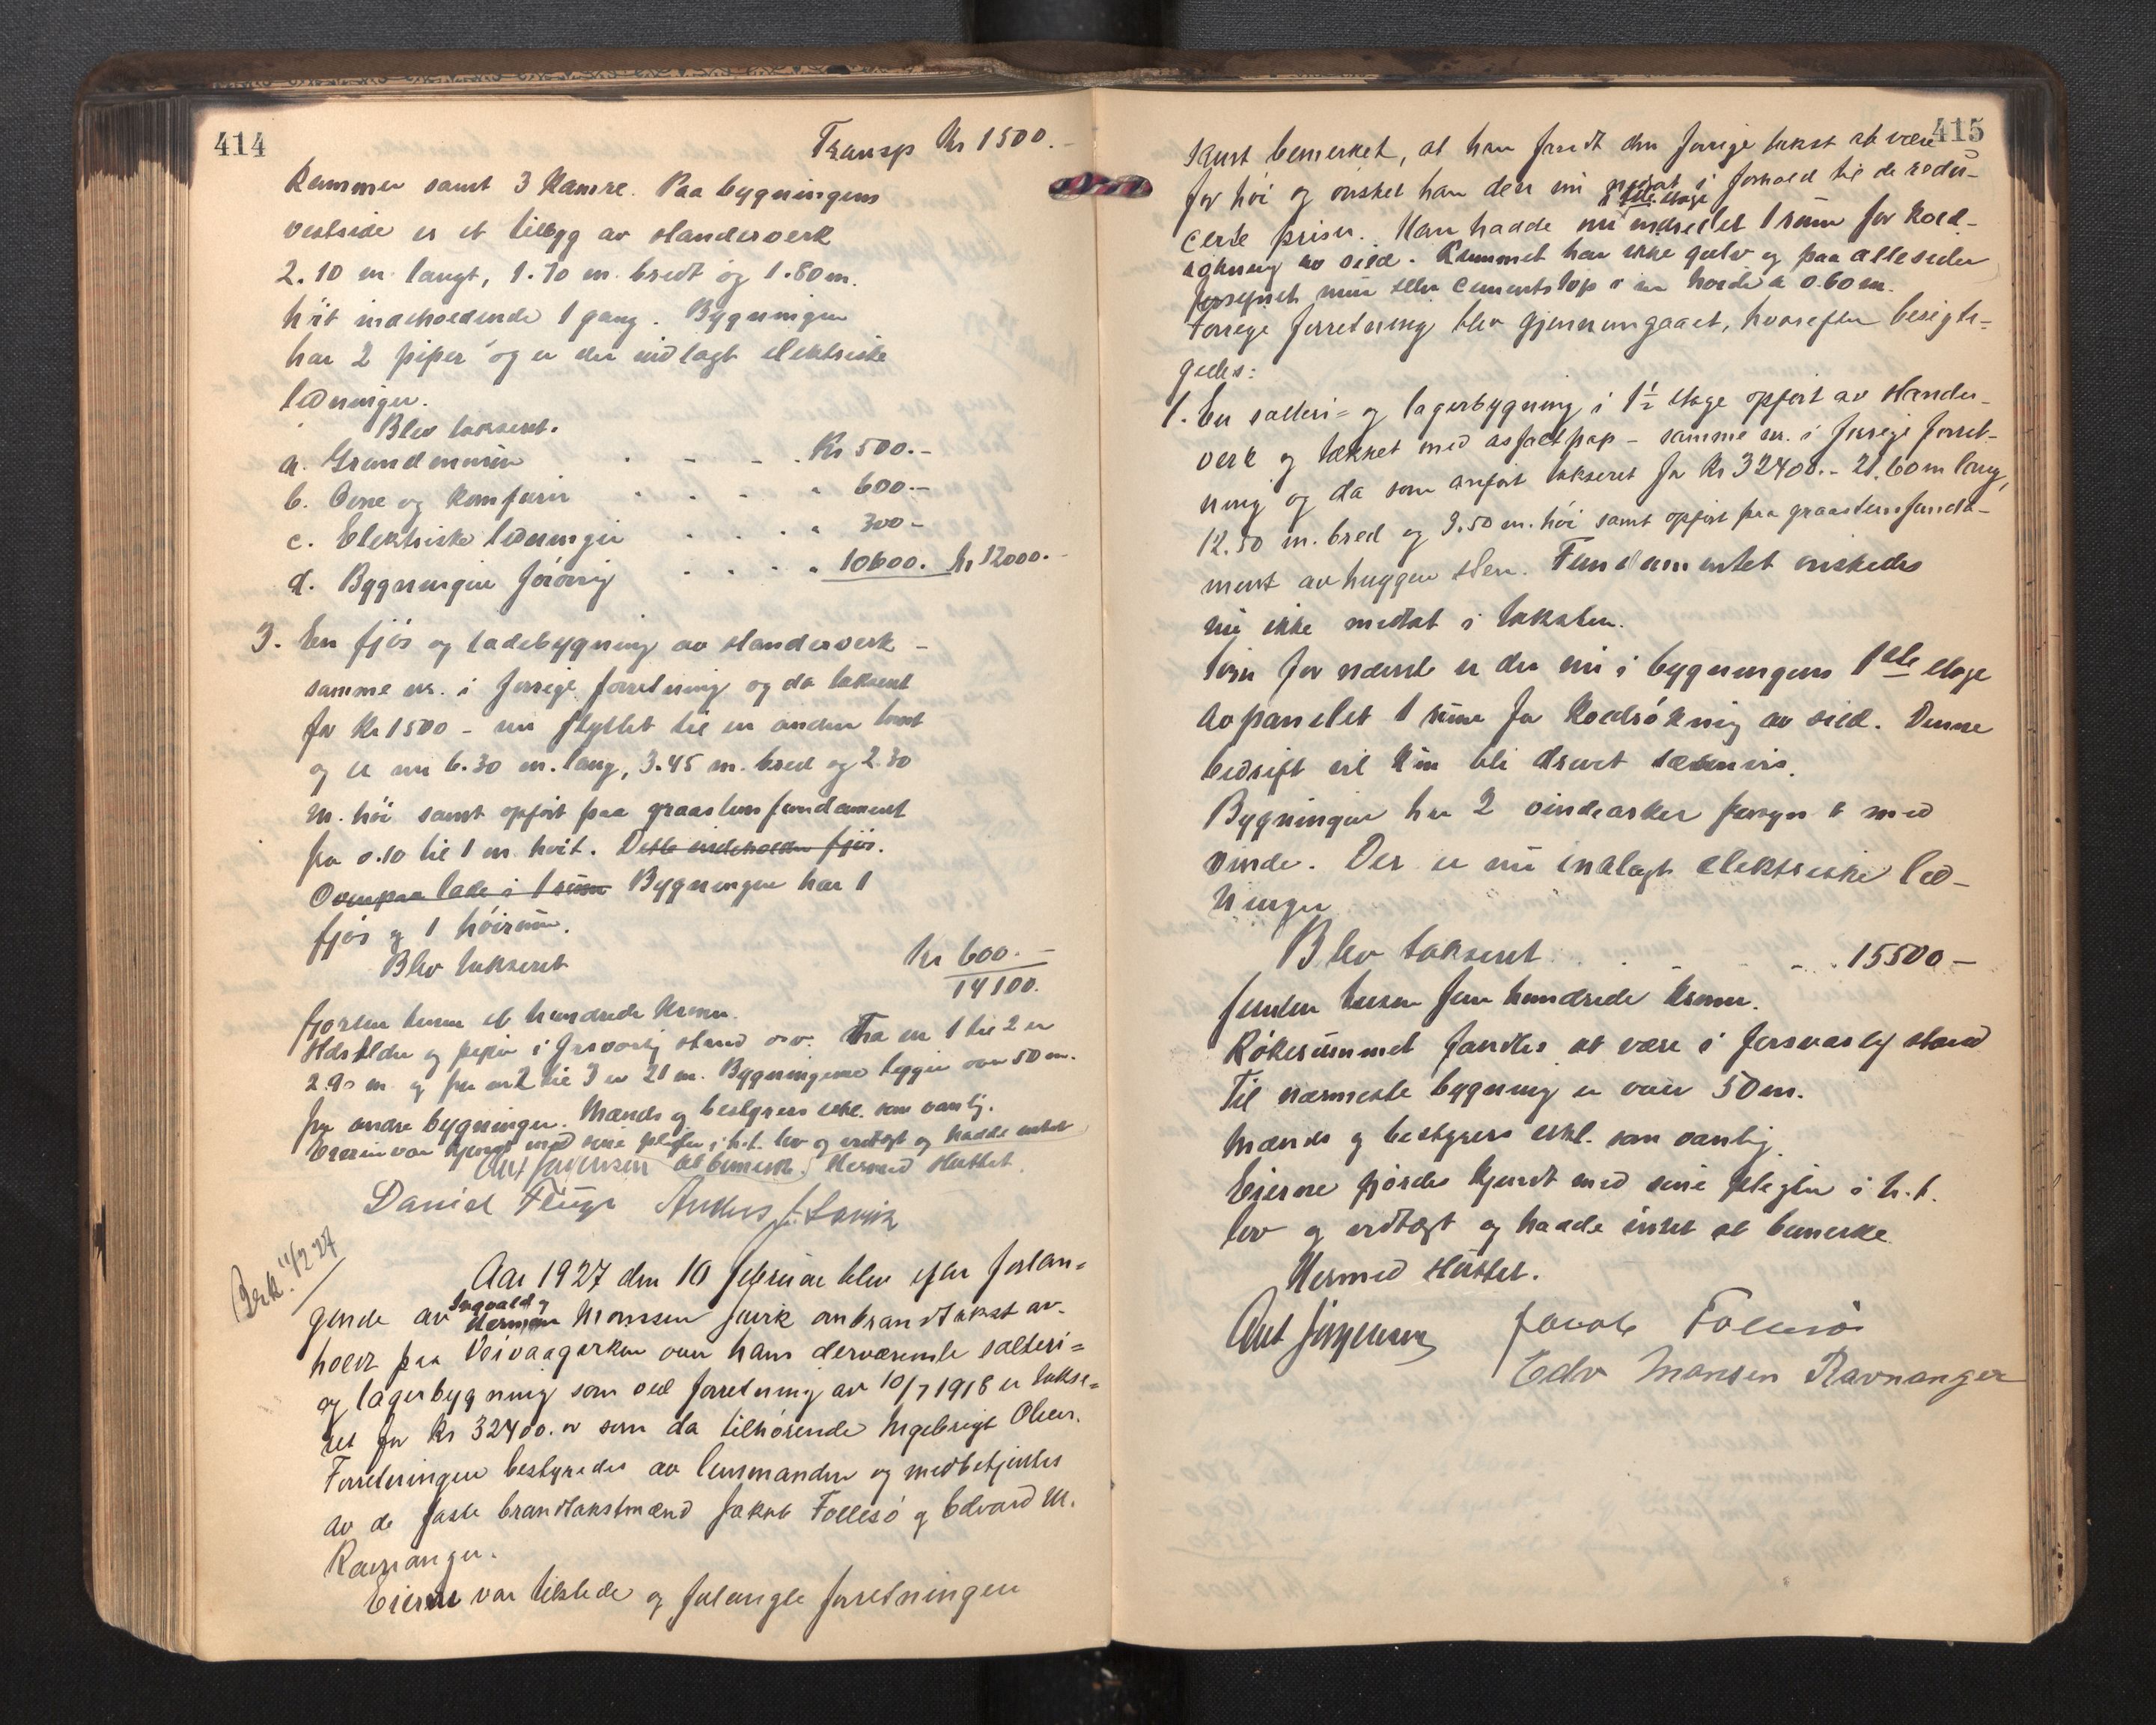 414
Transp Kr 1500.-
Kammer samt 3 kamre. Paa bygningens
vestside er et tilbygg av standerverk
2.10 m. langt, 1.70 m. bredt og 1.80 m.
höit indeholdende 1 gang. Bygningen
har 2 piper og er der indlagt elektriske
ledninger.
Blev taksert.
a. Grundmuren . - - . Kr 500.-
b. Ovne og komfurer . . . . " 600.-
c. Elektriske ledninger . . . . " 300-
d. Bygningen forövrig . . . . " 10600. Kr 12000.-
3. En fjös og ladebygning av standerverk -
samme nr. i forrige forretning og da taksert
for Kr 1500 - nu flyttet til en anden tomt
og er nu 6.30 m. lang, 3.45 m. bred og 2.30
m. höi samt opfört paa graastensfundament
fra 0.10 til 1 m. höit. Dette indeholder fjös.
Ovenpaa lade i 1 rum Bygningen har 1
fjös og 1 höirum.
Blev takseret Kr 600.-
14100.
fjorten tusen et hundrede kroner.
Ildsteder og piper i forsvarlig stand osv. Fra nr 1 til 2 er
2.90 m. og fra nr 2 til 3 er 21 m. Bygningerne ligger over 50 m.
fra andre bygninger. Mænds og bestyrers erkl. som vanlig.
Eieren var kjendt med sine pligter i h.t. lov og vedtægt og hadde intet
at bemerke. Hermed sluttet.
Daniel Fluge Anders J.
Brk. 11/2 27
Aar 1927 den 10 februar blev efter forlan=
gende av Ingvald og
Herman Monssen Turk brandtakst av-
holdt paa over hans derværende salteri=
og lagerbygning som ved forretning av 10/7 1918 er takse=
ret for Kr 32400. som da tilhörende Ingebrigt Olsen.
Forretningen bestyredes av lensmanden og medbetjentes
av de faste brandtakstmænd Jakob Follesö og Edvard M.
Ravnanger.
Eierne var tilstede og forlangte forretningen
415
Kunst bemerket, at han fandt den forrige takst at være
for höi og önsket han den nu nedsat i forhold til de redu-
i 1ste etage
certe priser. Han hadde nu indredet 1 rum for kold-
rökning av sild. Rummet har ikke gulv og paa alle sider
forsynet mur eller cementstöp i en höide a 0.60 m.
Forrige forretning blev gjennemgaaet, hvorefter besigti-
gedes:
1. En salteri= og lagerbygning i 1½ etage opfört av stander-
verk og tækket med asfaltpap - samme nr. i forrige forret-
ning og da som anfört takseret for Kr 32400.- 21.60 m lang,
12.50 m. bred og 3.50 m. höi samt opfört paa graastensfunda-
ment av huggen sten. Fundamentet önskedes
nu ikke medtat i taksten.
Som for nævnt er der nu i bygningens 1ste etage
avpanelet 1 rum for koldrökning av sild. Denne
bedrift vil kun bli drevet
Bygningen har 2 vindearker forsynt med
vinde. Der er nu indlagt elektriske led-
ninger
Blev takseret . . - - - . 15500 -
femten tusen fem hundrede kroner.
Rökerummet fandtes at være i forsvarlig stand
Til nærmeste bygning er over 50 m.
Mænds og bestyrers erkl. som vanlig.
Eierne gjordes kjendt med sine pligter i h.t.
lov og vedtægt og hadde intet at bemerke
Hermed sluttet.
Ant Jörgensen Jakob Follesö
Edv Monsen Ravnanger